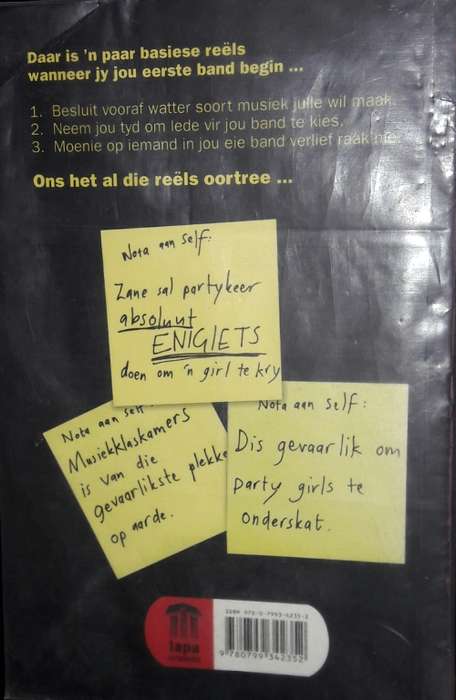 Daar is 'n paar basiese reëls
wanneer jy jou eerste band begin ...
1. Besluit vooraf watter soort musiek julle wil maak.
2. Neem jou tyd om lede vir jou band te kies.
3. Moenie op iemand in jou eie band verlief raak nie.
Ons het al die reëls oortree ...
Nota aan self:
Zane sal partykeer
absoluut
ENIGIETS
doen om 'n girl te kry
Nota aan self:
Musiekklaskamers
is van die
gevaarlikste plekke
op aarde.
Nota aan self:
Dis gevaarlik om
party girls te
onderskat.
ISBN 978-0-7993-4235-2
9 780799 342352
lapa